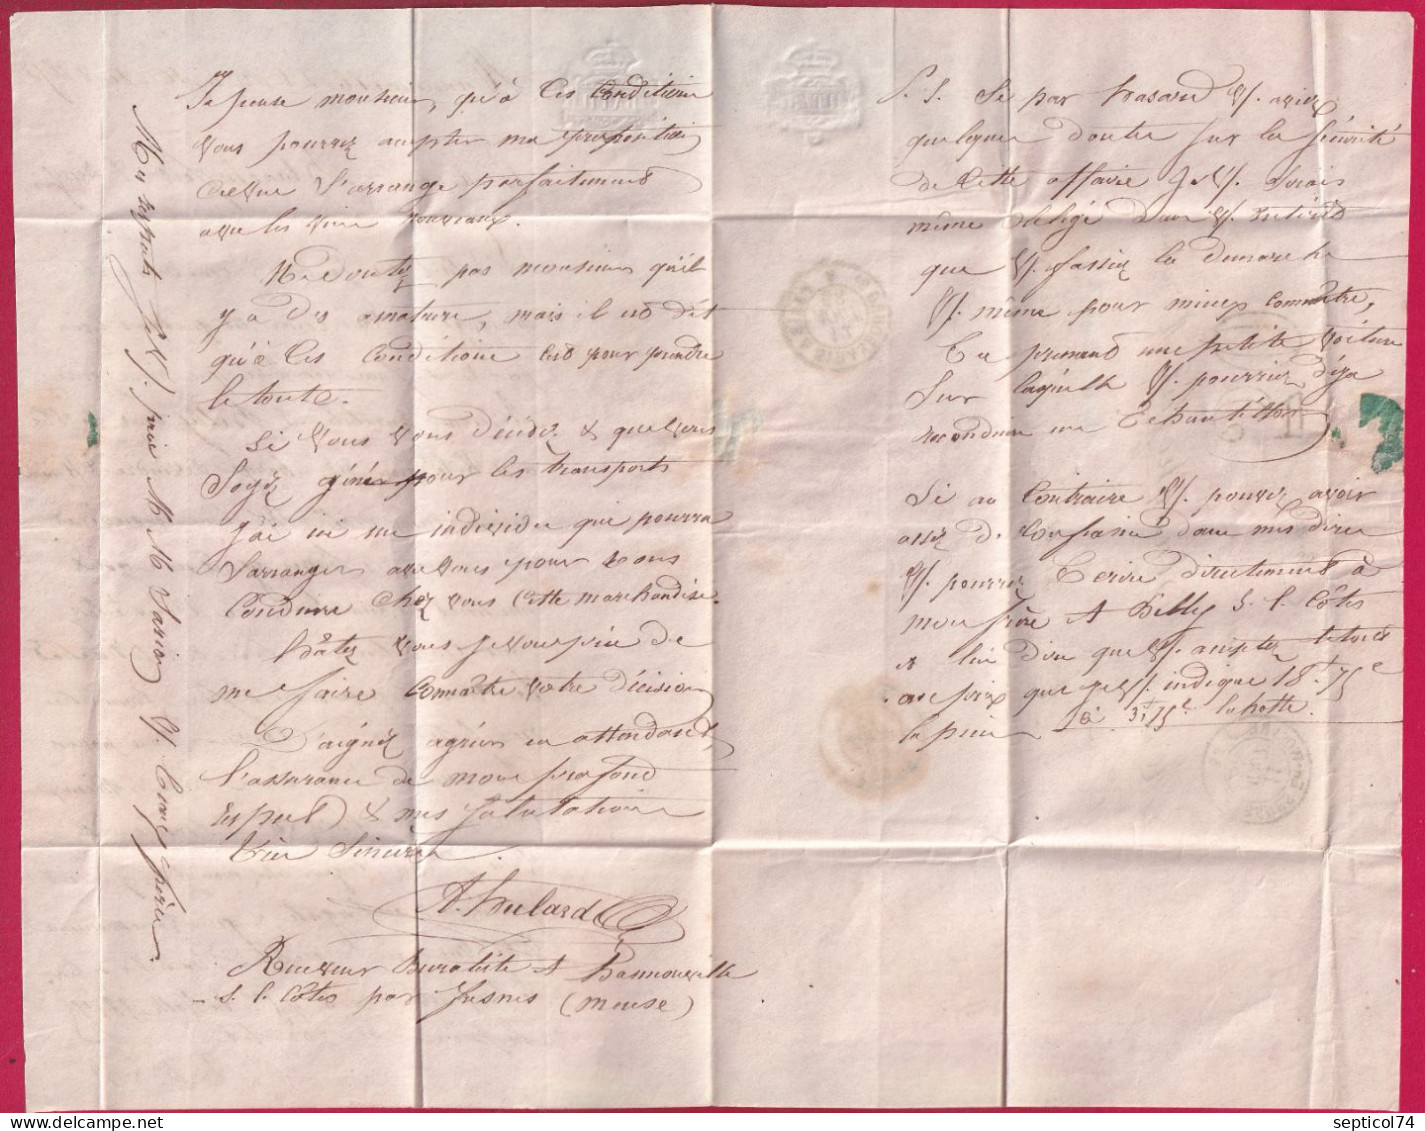 Je pense monsieur, qu'à ces conditions
vous pourrez accepter ma proposition
s'arrange parfaitement
avec les vins nouveaux.
Ne doutez pas monsieur qu'il
y a des amateurs, mais il est dit
qu'à ces conditions c'est pour prendre
le tout.
Si vous vous décidez & que vous
soyez gêné pour les transports
j'ai ici un individu que pourra
s'arranger avec vous pour vous
conduire chez vous cette marchandise.
hâtez vous je vous prie de
me faire connaître votre décision
Daignez agréer en attendant,
l'assurance de mon profond
respect & mes salutations
bien sincères.
A. Hulard
Receveur buraliste à hannonville
s. l. Côtes par fresnes (meuse)
Mes respects je V. prie M M
P. S. Si par hasard V. aviez
quelques doutes sur la sécurité
de cette affaire je V. serais
même obligé dans V. intérêt
que V. fassiez la démarche
V. même pour mieux connaître,
En prenant une petite voiture
sur laquelle V. pourriez déja
reconduire un Echantillon
Si au contraire V. pouvez avoir
assez de confiance dans mes dires
V. pourrez Ecrire directement à
mon frère à Billy s. l. Côtes
& lui dire que V. acceptez le tout
au prix que je V. indique 18f. 75c
la pièce à 3f. 75c la hotte.